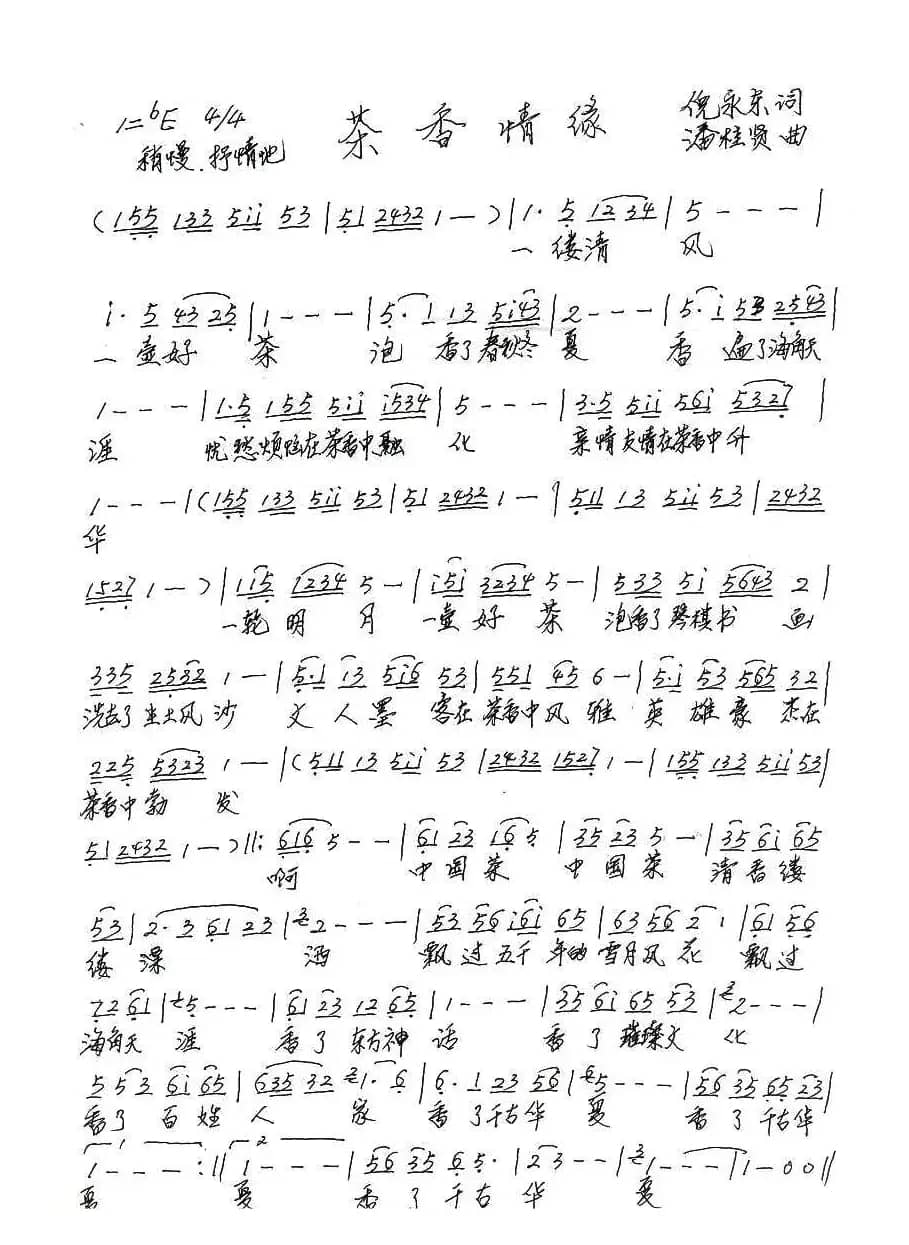 1=♭E 4/4 茶香情缘 倪永东词
稍慢.抒情地 潘桂贤曲
(155 133 5ii 53|51 2432 1—)|1·5 12 34|5---|
一缕清风
i·5 43 25|1---|5·1 13 5i43|2---|5·i 53 2543|
一壶好茶 泡香了春秋冬夏 香遍了海角天
1---|1·5 155 5ii i534|5---|3·5 5ii 56i 5327|
涯 忧愁烦恼在茶香中融化 亲情友情在茶香中升
1---|(155 133 5ii 53|51 2432 1—|511 13 5ii 53|2432
华
1527 1—)|1i5 1234 5—|i5i 3234 5—|533 5i 5643 2|
一轮明月 一壶好茶 泡香了琴棋书画
335 2532 1—|5·1 i3 5i6 53|551 45 6—|5·i 53 565 32|
洗去了尘土风沙 文人墨客在茶香中风雅 英雄豪杰在
225 5323 1—|(511 13 5ii 53|2432 1527 1—|155 133 5ii 53|
茶香中勃发
51 2432 1—)||:616 5--|61 23 16 5|35 23 5—|35 6i 65
啊 中国茶 中国茶 清香缕
53|2·3 61 23|2---|53 56 i6i 65|63 56 2 1|61 56
缕 洒 飘过五千年的雪月风花 飘过
72 61|5---|61 23 12 65|1---|35 6i 65 53|2---|
海角天涯 香了东方神话 香了璀璨文化
5 53 6i 65|635 32 1·6|6·1 23 56|5---|56 35 65 23|
香了百姓人家 香了千古华夏 香了千古华
1 2
1---:||1---|56 35 6 5·|23--|1---|1-00||
夏 夏 香了千古华夏